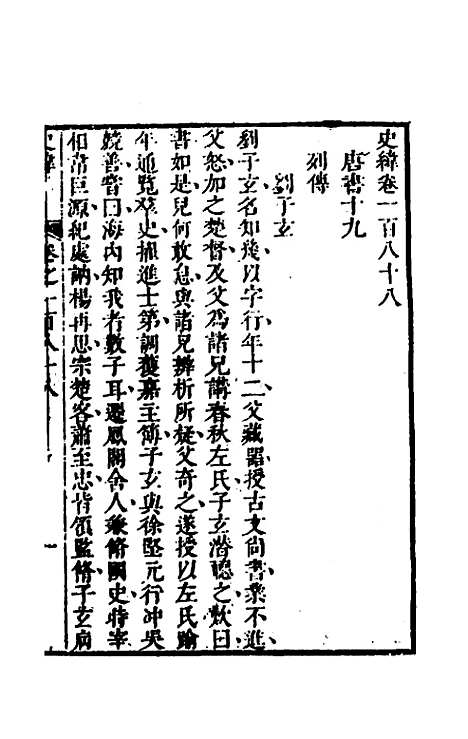 史緯卷一百八十八
唐書十九
列傳
劉子玄
劉子玄名知幾以字行年十二父藏器授古文尚書業不進
父怒加之楚督及父爲諸兄講春秋左氏子玄潛聽之歎曰
書如是兒何敢怠與諸兄辨析所疑父奇之遂授以左氏踰
年通覽羣史擢進士第調獲嘉主簿子玄與徐堅元行冲吳
兢善嘗曰海內知我者數子耳遷鳳閣舍人兼脩國史時宰
相韋巨源紀處訥楊再思宗楚客蕭至忠皆領監脩子玄病
史緯 卷之一百八十八 一